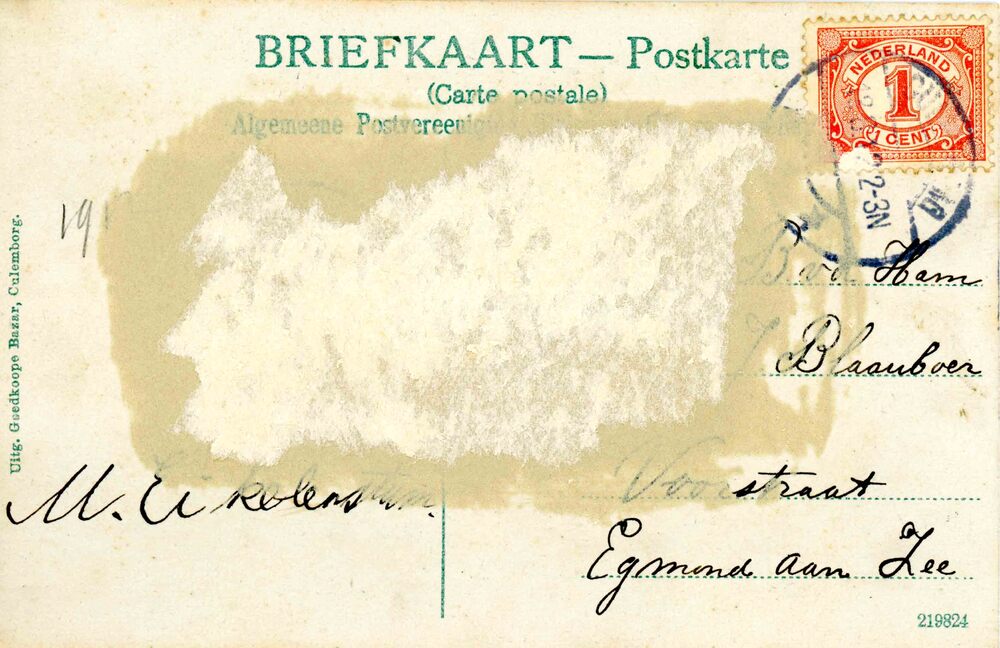 BRIEFKAART — Postkarte
(Carte postale)
Algemeene Postvereeniging
NEDERLAND
1
1 CENT
2-3N
19
B v. d. Ham
Blaauboer
Voorstraat
Egmond aan Zee
M. Eikelenstam.
Uitg. Goedkoope Bazar, Culemborg.
219824